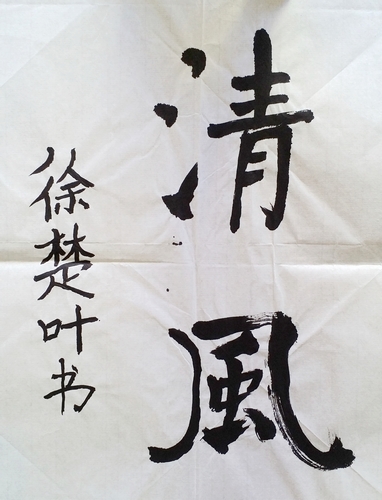 清風
徐楚叶书